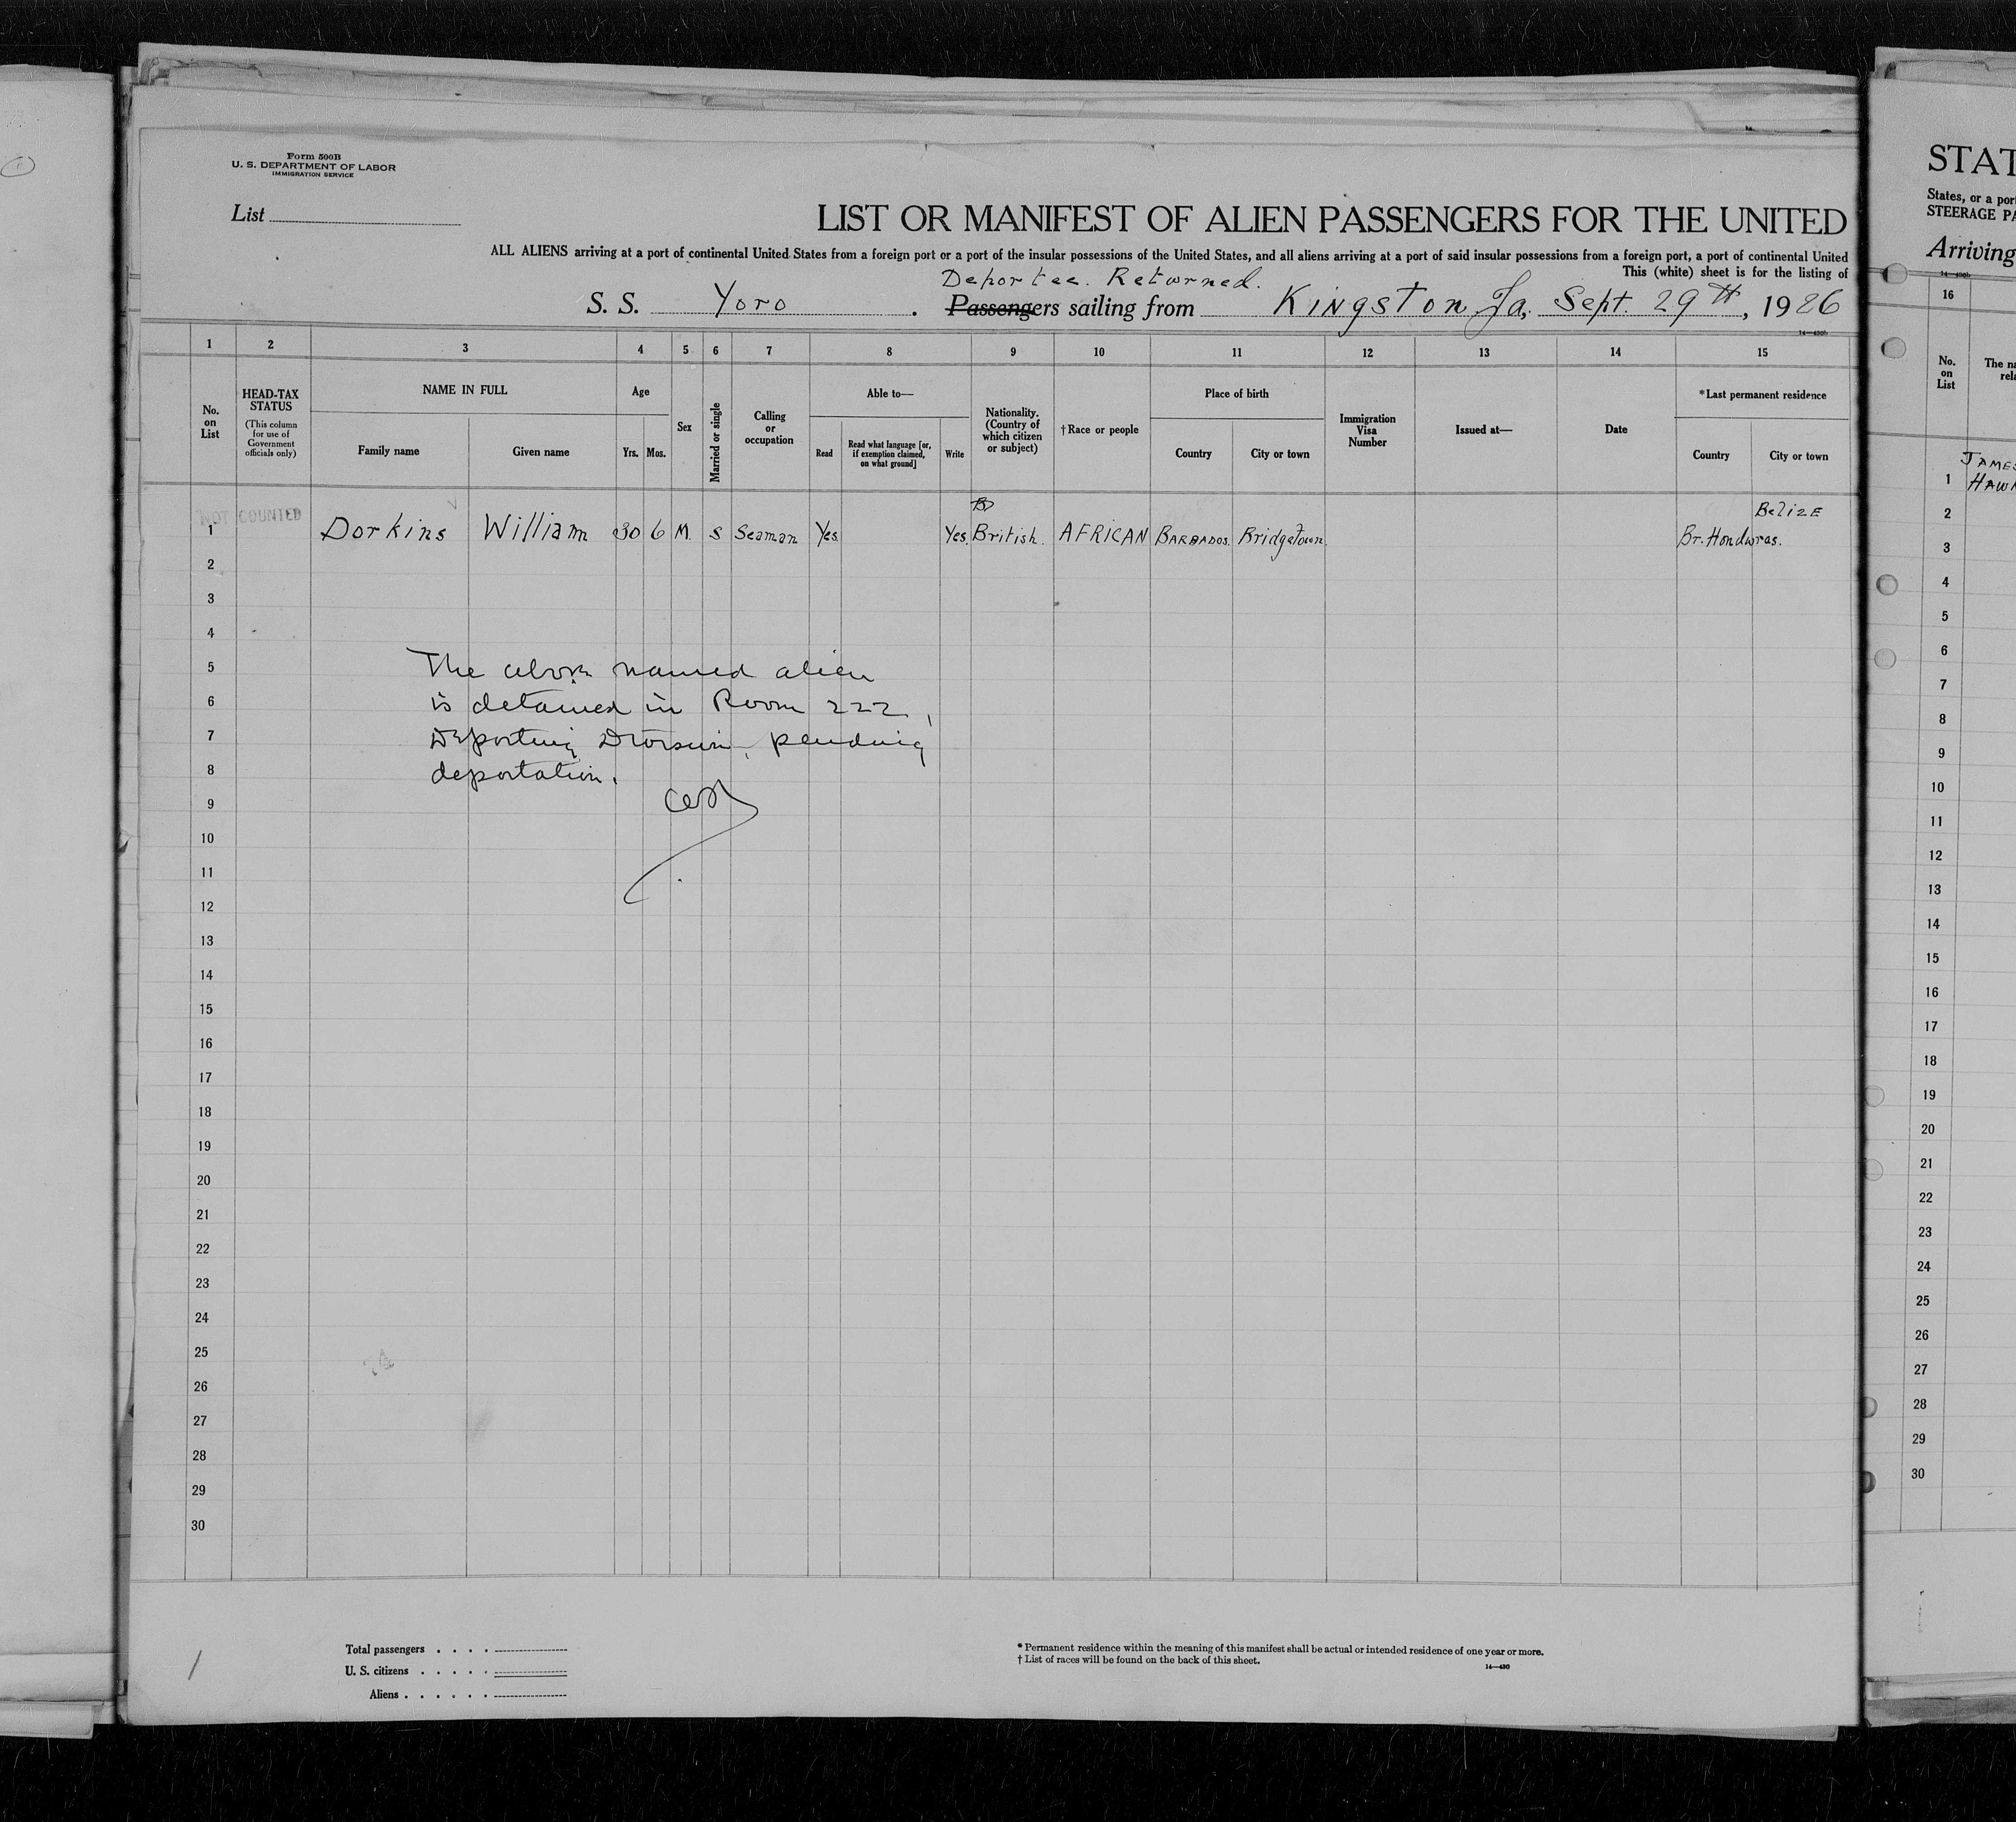 Form 500B
U. S. DEPARTMENT OF LABOR
IMMIGRATION SERVICE
List
LIST OR MANIFEST OF ALIEN PASSENGERS FOR THE UNITED
ALL ALIENS arriving at a port of continental United States from a foreign port or a port of the insular possessions of the United States, and all aliens arriving at a port of said insular possessions from a foreign port, a port of continental United
This (white) sheet is for the listing of
Deportee. Returned.
S. S. Yoro . Passengers sailing from Kingston Ja, Sept. 29th, 1926
14—430b
1 2 3 4 5 6 7 8 9 10 11 12 13 14 15
No. on List
HEAD-TAX STATUS
(This column for use of Government officials only)
NAME IN FULL
Family name Given name
Age
Yrs. Mos.
Sex
Married or single
Calling or occupation
Able to—
Read
Read what language [or, if exemption claimed, on what ground]
Write
Nationality. (Country of which citizen or subject)
†Race or people
Place of birth
Country City or town
Immigration Visa Number
Issued at—
Date
*Last permanent residence
Country City or town
NOT COUNTED
Belize
1 Dorkins William 30 6 M. S Seaman Yes. Yes. British. AFRICAN BARBADOS. Bridgetown. Br. Honduras.
2
3
4
5 The above named alien
6 is detained in Room 222,
7 Deporting Division, pending
8 deportation.
9
10
11
12
13
14
15
16
17
18
19
20
21
22
23
24
25
26
27
28
29
30
Total passengers . . . .
U. S. citizens . . . . .
Aliens . . . . . .
* Permanent residence within the meaning of this manifest shall be actual or intended residence of one year or more.
† List of races will be found on the back of this sheet.
14—430
STAT
States, or a por
STEERAGE PA
Arriving
14—430b
16
No. on List
The na
rela
JAMES
1 HAW
2
3
4
5
6
7
8
9
10
11
12
13
14
15
16
17
18
19
20
21
22
23
24
25
26
27
28
29
30